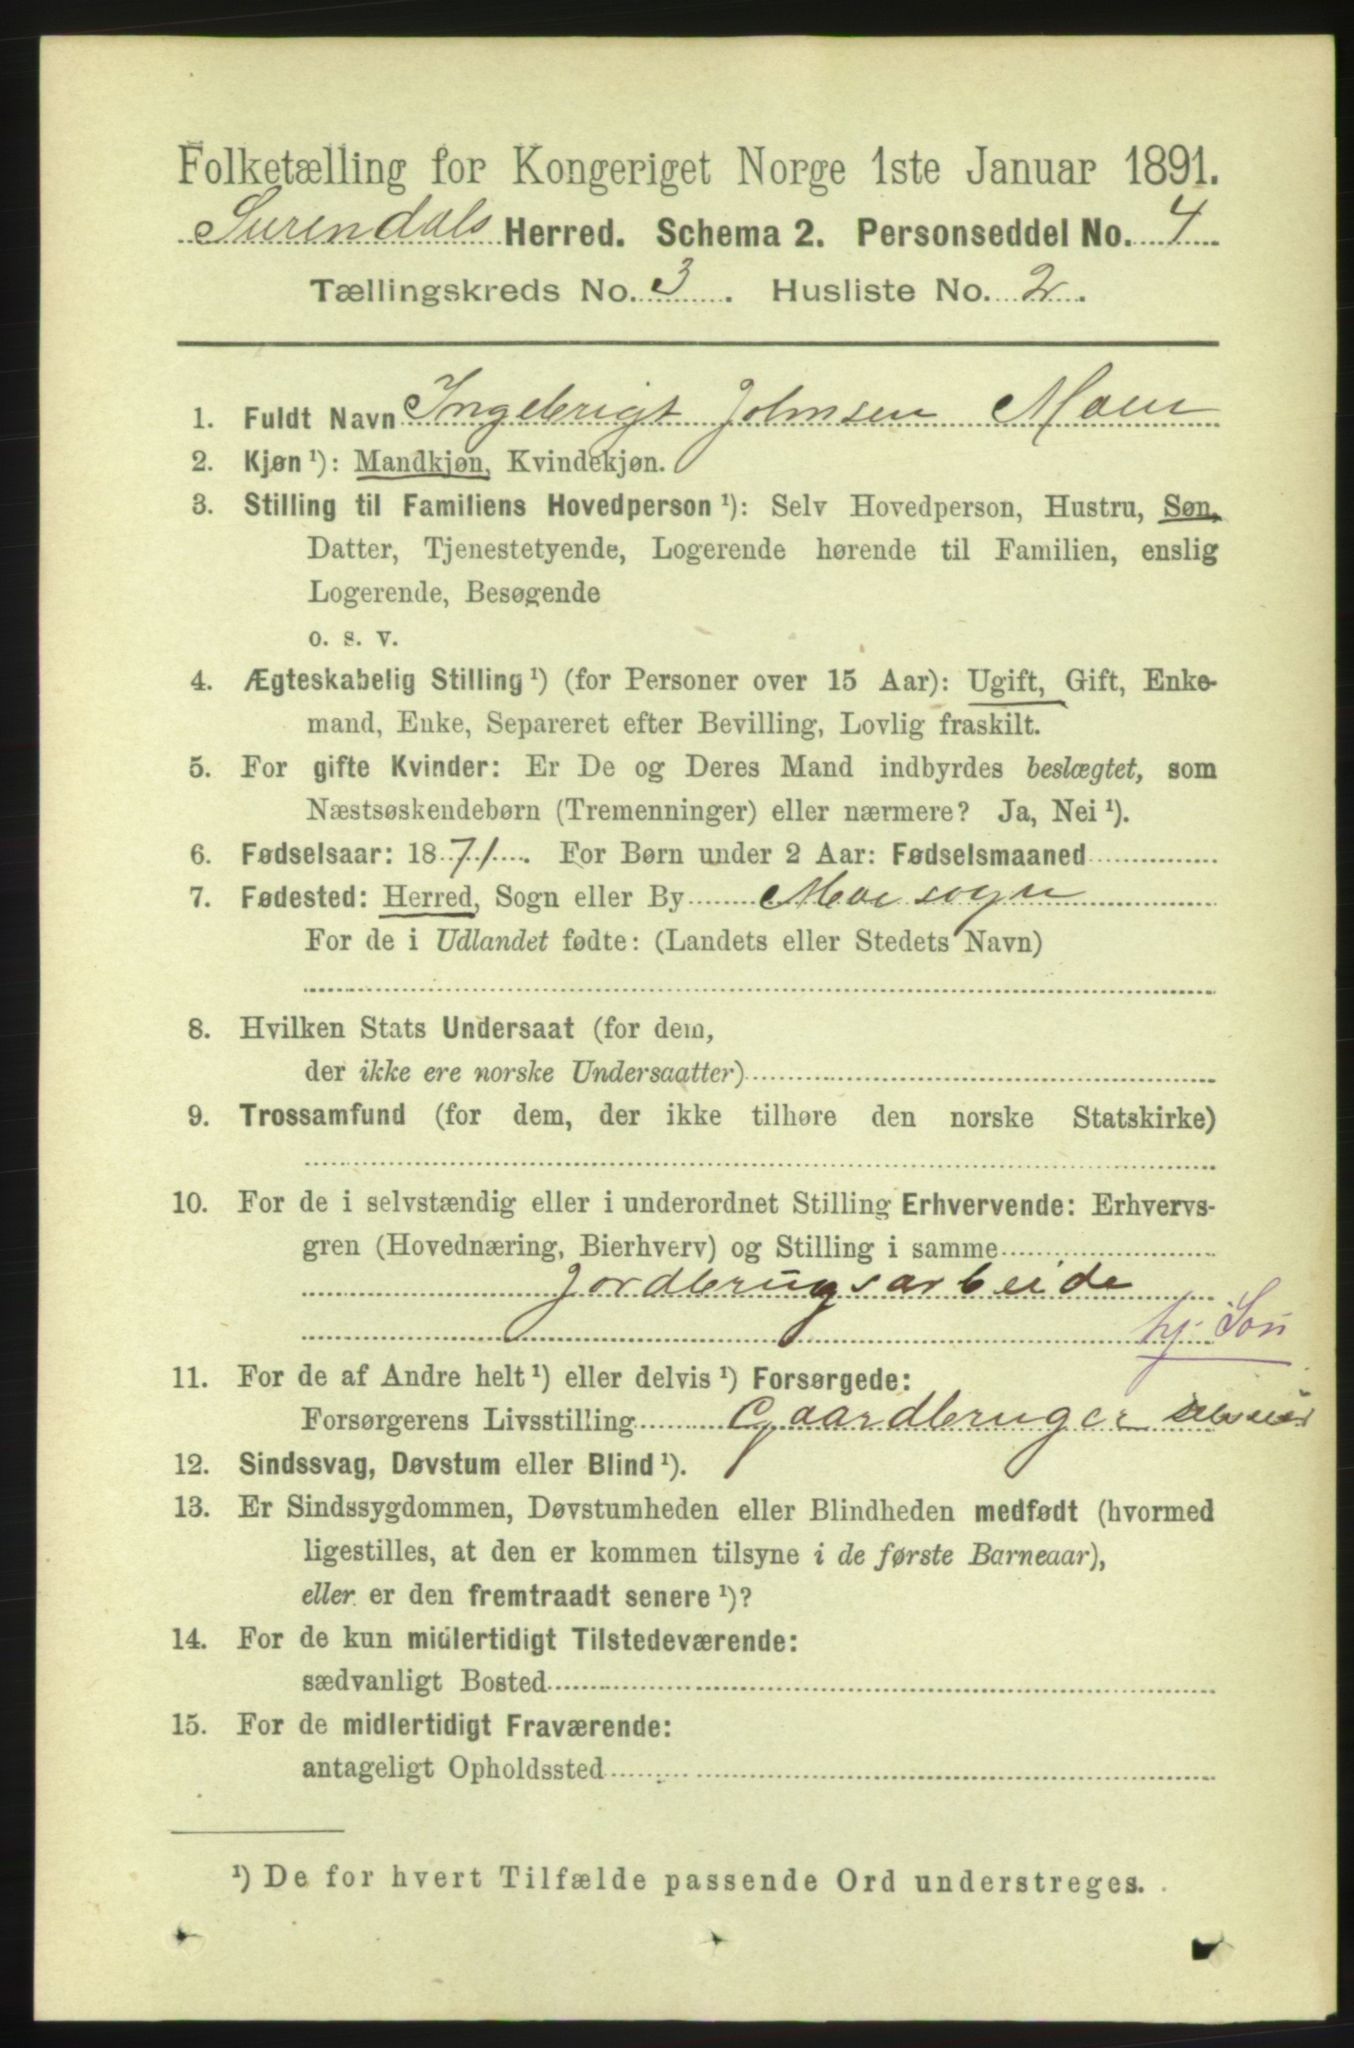 Folketælling for Kongeriget Norge 1ste Januar 1891.
Surendals Herred. Schema 2. Personseddel No. 4
Tællingskreds No. 3. Husliste No. 2.
1. Fuldt Navn Ingebrigt Johnsen Moen
2. Kjøn ¹): Mandkjøn, Kvindekjøn.
3. Stilling til Familiens Hovedperson ¹): Selv Hovedperson, Hustru, Søn,
Datter, Tjenestetyende, Logerende hørende til Familien, enslig
Logerende, Besøgende
o. s. v.
4. Ægteskabelig Stilling ¹) (for Personer over 15 Aar): Ugift, Gift, Enke-
mand, Enke, Separeret efter Bevilling, Lovlig fraskilt.
5. For gifte Kvinder: Er De og Deres Mand indbyrdes beslægtet, som
Næstsøskendebørn (Tremenninger) eller nærmere? Ja, Nei ¹).
6. Fødselsaar: 1871. For Børn under 2 Aar: Fødselsmaaned
7. Fødested: Herred, Sogn eller By Moe sogn
For de i Udlandet fødte: (Landets eller Stedets Navn)
8. Hvilken Stats Undersaat (for dem,
der ikke ere norske Undersaatter)
9. Trossamfund (for dem, der ikke tilhøre den norske Statskirke)
10. For de i selvstændig eller i underordnet Stilling Erhvervende: Erhvervs-
gren (Hovednæring, Bierhverv) og Stilling i samme
Jordbrugsarbeide
hj. Søn
11. For de af Andre helt ¹) eller delvis ¹) Forsørgede:
Forsørgerens Livsstilling Gaardbruger selveier
12. Sindssvag, Døvstum eller Blind ¹).
13. Er Sindssygdommen, Døvstumheden eller Blindheden medfødt (hvormed
ligestilles, at den er kommen tilsyne i de første Barneaar),
eller er den fremtraadt senere ¹)?
14. For de kun midlertidigt Tilstedeværende:
sædvanligt Bosted
15. For de midlertidigt Fraværende:
antageligt Opholdssted
¹) De for hvert Tilfælde passende Ord understreges.